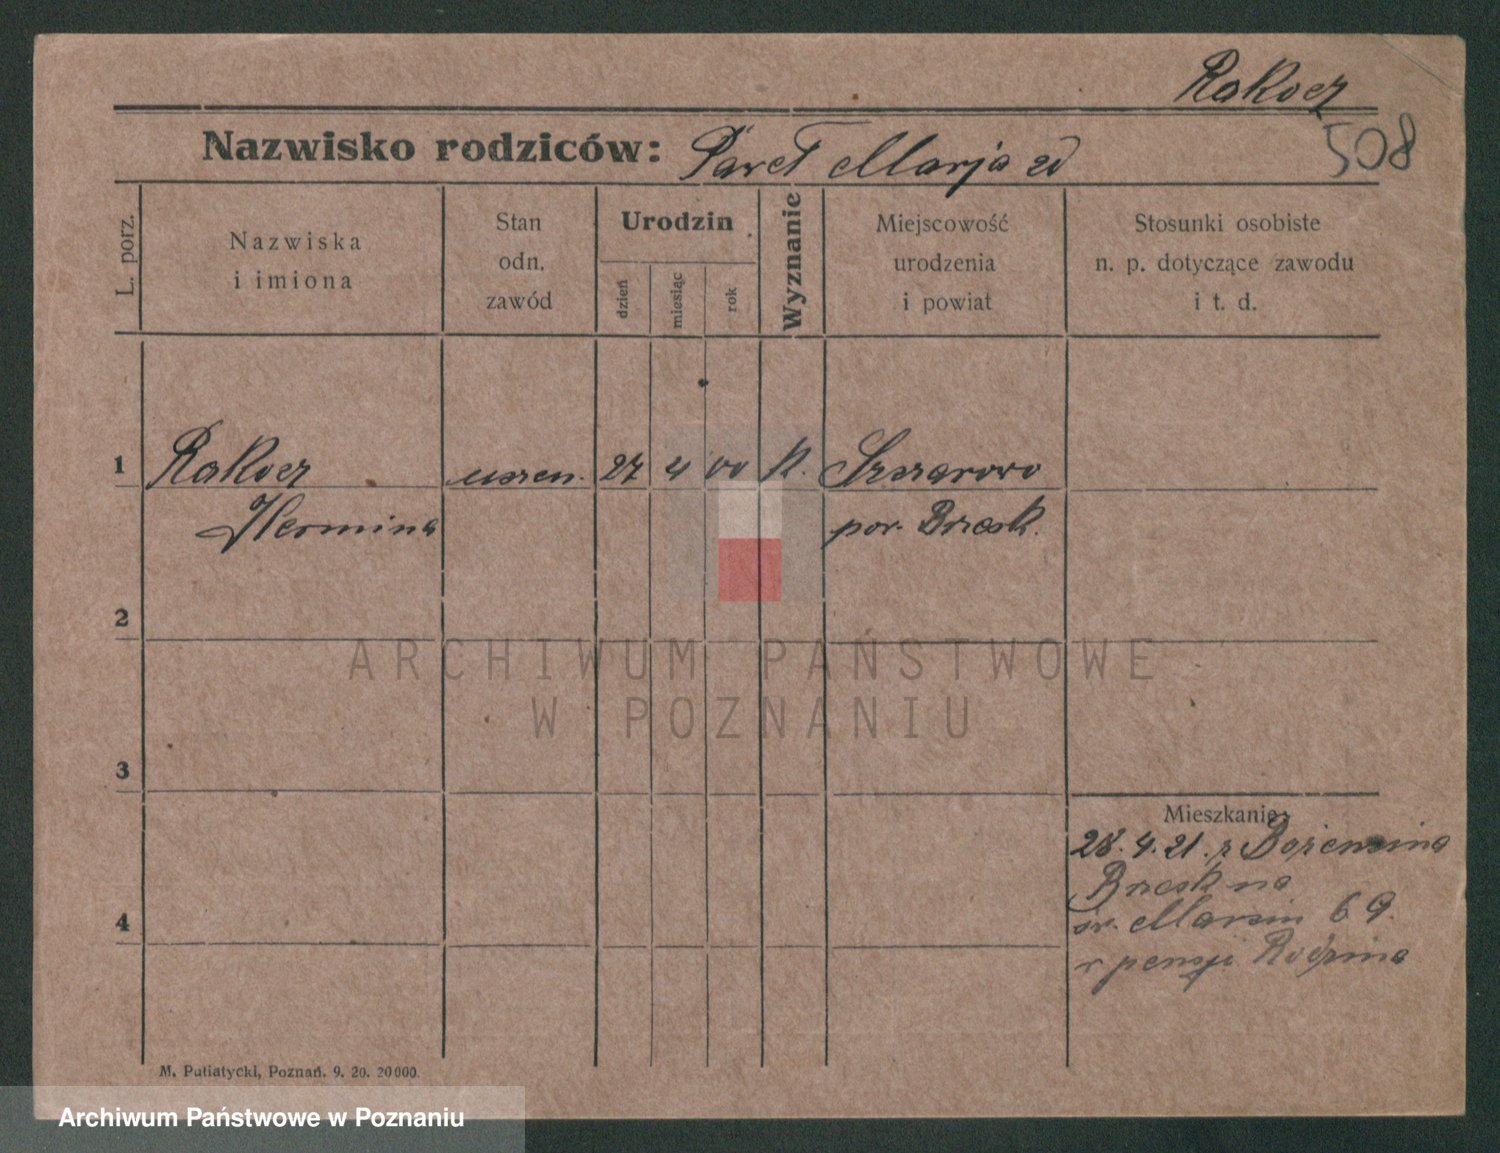 Rakocz
508
Nazwisko rodziców: Paweł Marja zd
L. porz.
Nazwiska i imiona
Stan odn. zawód
Urodzin
dzień
miesiąc
rok
Wyznanie
Miejscowość urodzenia i powiat
Stosunki osobiste n. p. dotyczące zawodu i t. d.
1 Rakocz uczen. 27 4 00 k. Szczurowo
Hermina pow. Brzesk.
2
3
Mieszkanie:
28. 4. 21. z
Brzesk na
św. Marcin 69.
4
w pensji
M. Putiatycki, Poznań. 9. 20. 20000.
ARCHIWUM PAŃSTWOWE
W POZNANIU
Archiwum Państwowe w Poznaniu